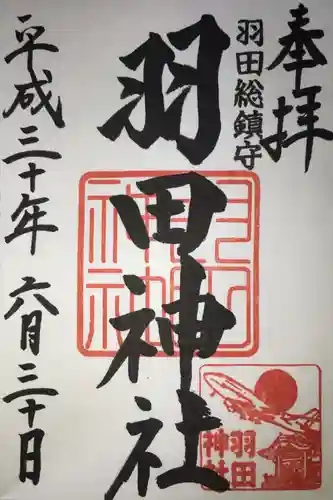 奉拝
羽田総鎮守
羽田神社
平成三十年 六月三十日
羽田神社
羽田
神社